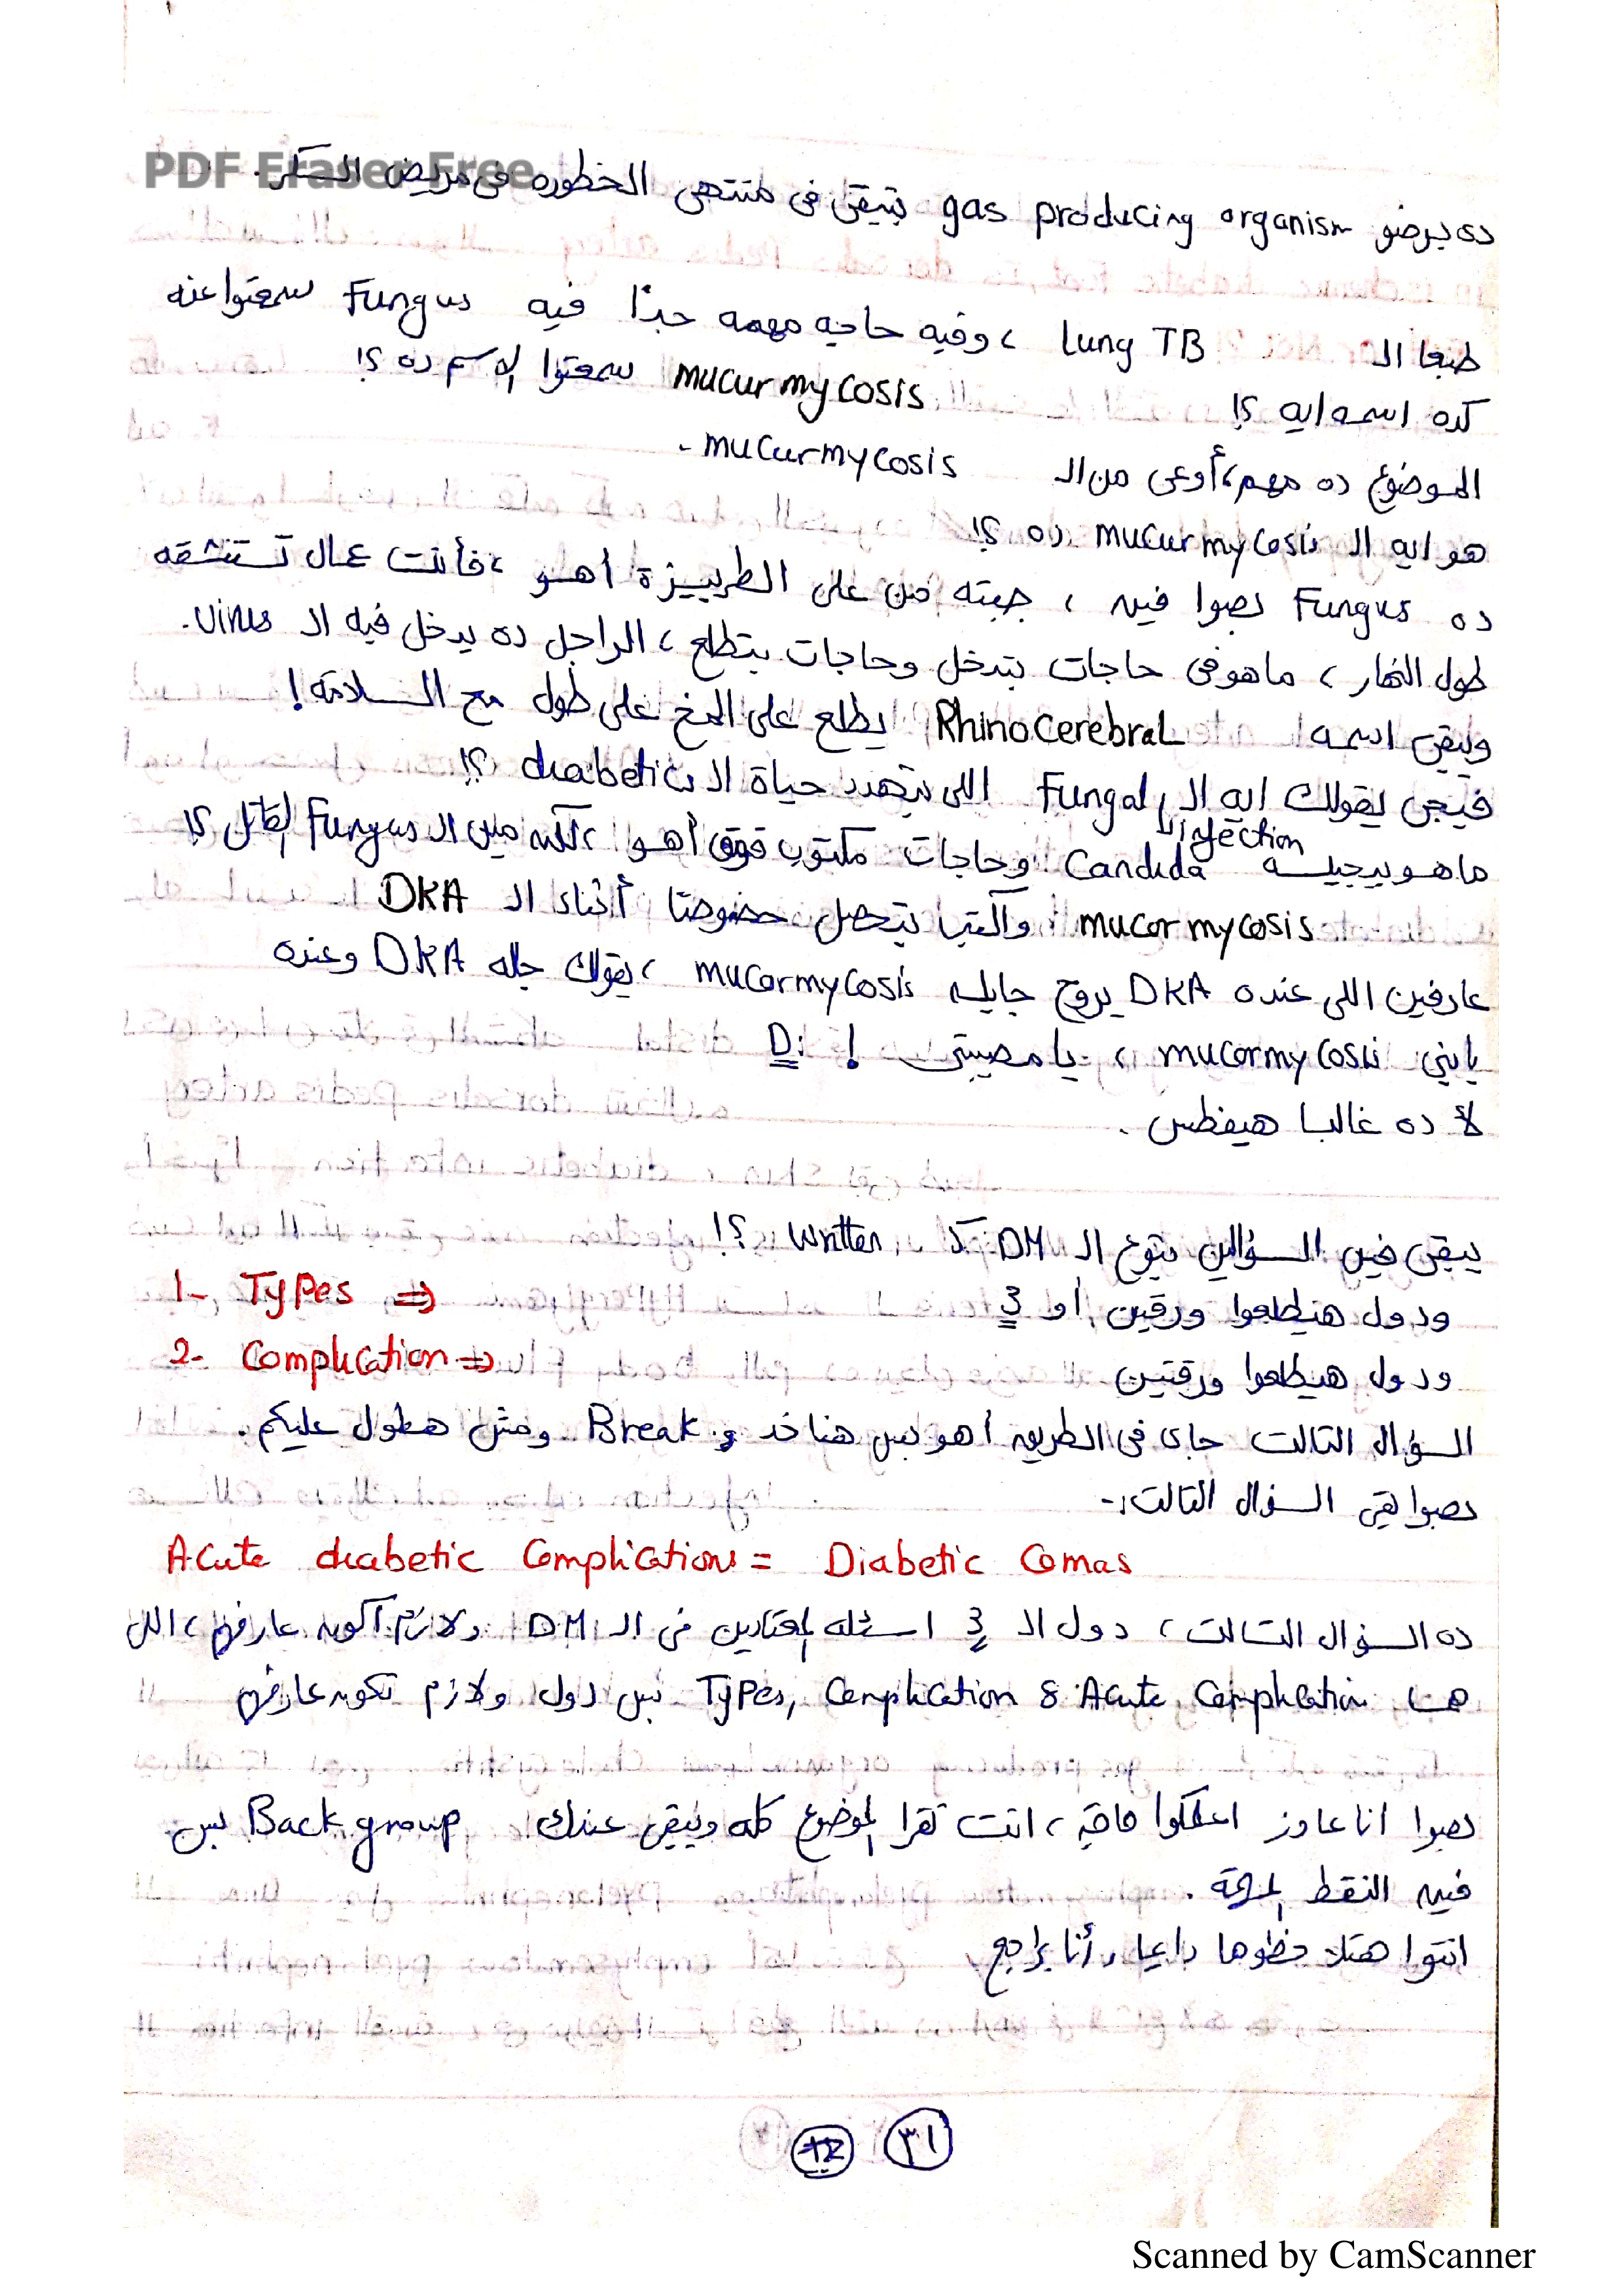 PDF Eraser Free
دى برضو gas producing organism بتبقى فى منتهى الخطوره فى مريض السكر.
طبعا الـ lung TB ، وفيه حاجه مهمه جدًا فيه Fungus سمعتوا عنه
كده اسمه ايه ؟! mucurmycosis سمعتوا الاسم ده ؟!
الموضوع ده مهم، أوعى من الـ mucurmycosis .
هو ايه الـ mucurmycosis ده ؟!
ده Fungus بصوا فيه ، جبته من على الطربيزة أهو ، فأنت عمال تستنشقه
طول النهار ، ماهو فى حاجات بتدخل وحاجات بتطلع ، الراجل ده يدخل فيه الـ virus.
ويبقى اسمه Rhinocerebral يطلع على المخ على طول مع السلامة !
فيجى يقولك ايه الـ Fungal infection اللى بتهدد حياة الـ diabetic ؟!
ماهو بيجيله Candida وحاجات مكتوب فوق أهو ، لكن مين الـ Fungus القاتل ؟!
mucormycosis واكتب بتحصل خصوصًا أثناء الـ DKA
عارفين اللى عنده DKA يروح جايله mucormycosis ، يقولك جاله DKA وعنده
يابنى mucormycosis ، يا مصيبتى ! D:
لأ ده غالبا هيفطس .
يبقى فين السؤالين بتوع الـ DM كـ written ؟!
1- Types ⇒ ودول هيطلعوا ورقتين أو 3
2- Complication ⇒ ودول هيطلعوا ورقتين
السؤال التالت جاى فى الطريق أهو بس هناخد Break ومش هطول عليكم .
بصوا بقى السؤال التالت :-
Acute diabetic Complications = Diabetic Comas
ده السؤال التالت ، دول الـ 3 اسئله المعتادين فى الـ DM ولازم أكون عارفهم ، اللى
هما Types, Complication & Acute Complication بس دول ولازم تكون عارفهم
بصوا انا عاوز اعلمكوا حاجة ، انت تقرا الموضوع كله ويبقى عندك Back group بس
فيه النقط المهمة .
انتوا هتلاحظوها دايما ، أنا براجع
٣١
Scanned by CamScanner